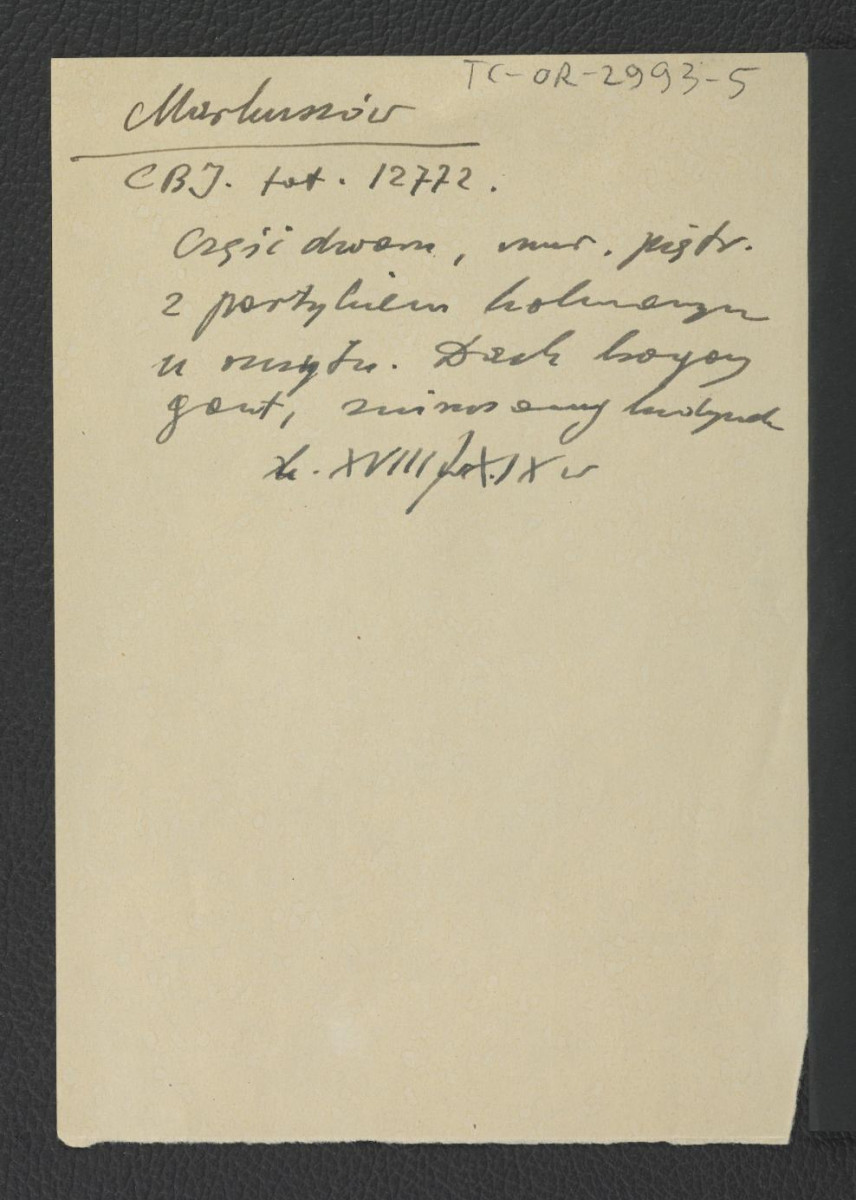 TC-OR-2993-5
Markuszów
CBJ. fot. 12772.
Część dworu, mur. piętr.
z portykiem kolumnowym
u szczytu. Dach kryty
gont,
k. XVIII/XIX w